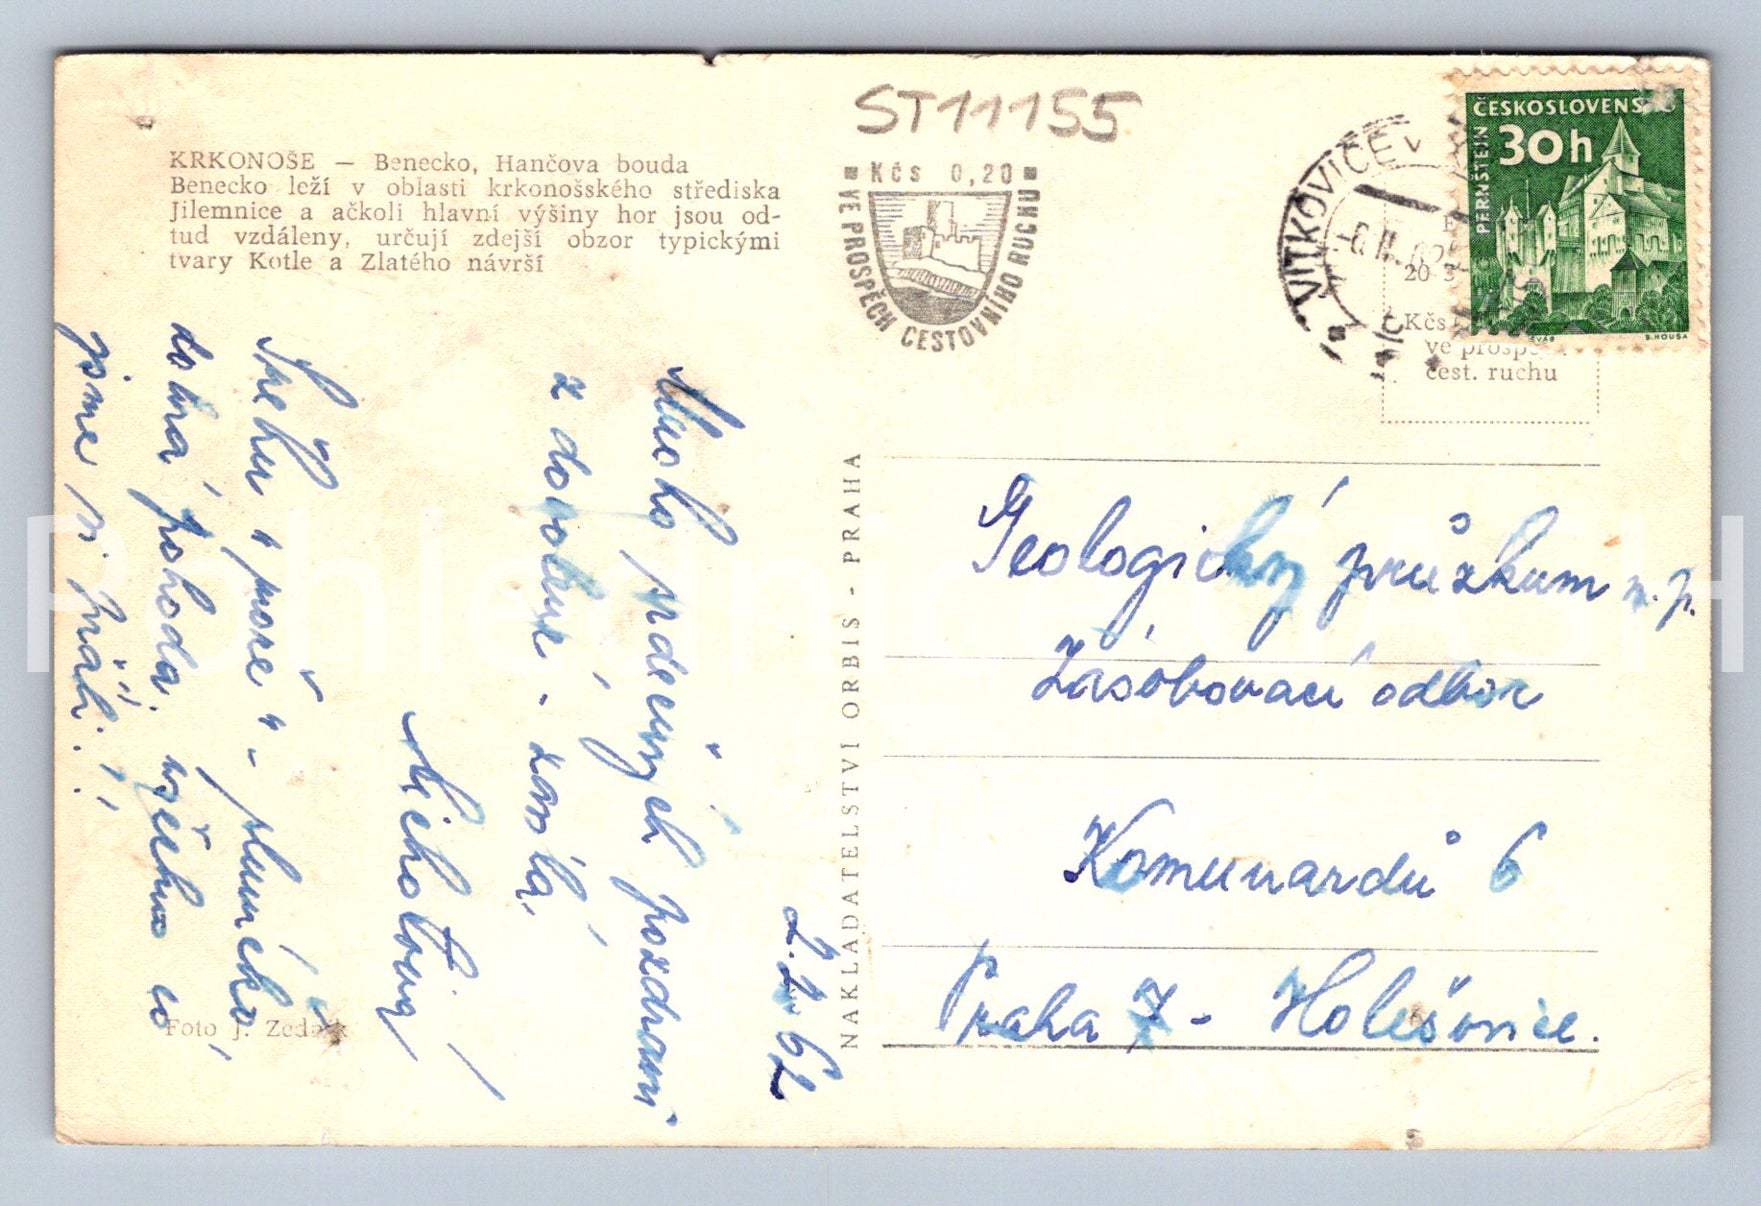 ST11155
KRKONOŠE — Benecko, Hančova bouda
Benecko leží v oblasti krkonošského střediska
Jilemnice a ačkoli hlavní výšiny hor jsou od-
tud vzdáleny, určují zdejší obzor typickými
tvary Kotle a Zlatého návrší
Kčs 0,20
VE PROSPĚCH CESTOVNÍHO RUCHU
VITKOVICE v
ČESKOSLOVENSKO
30h
PERNŠTEJN
ŠVÁB
B. HOUSA
Kčs
ve prospěch
čest. ruchu
2.2.62
Mnoho srdečných pozdravů
z dovolené
Sněhu "moře" - sluníčko
dobrá pohoda. všechno co
jsme si přáli!
NAKLADATELSTVÍ ORBIS - PRAHA
Geologický průzkum n.p.
Zásobovací odbor
Komunardů 6
Praha 7 - Holešovice.
Foto J.